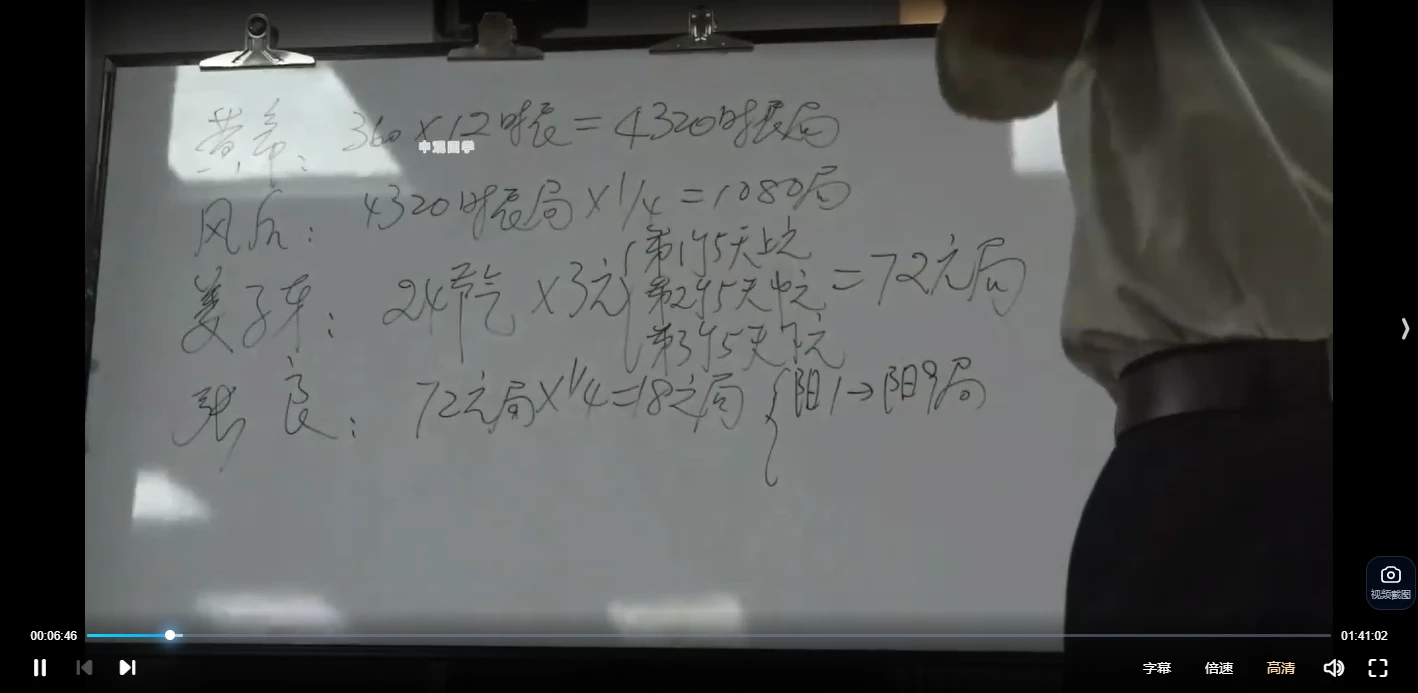 黄帝: 360×12时辰=4320时辰局
中观国学
风后: 4320时辰局×1/4=1080局
姜子牙: 24节气×3元{第1个5天上元
第2个5天中元
第3个5天下元
=72元局
张良: 72元局×1/4=18元局{阳1→阳9局
视频截图
00:06:46
01:41:02
字幕 倍速 高清